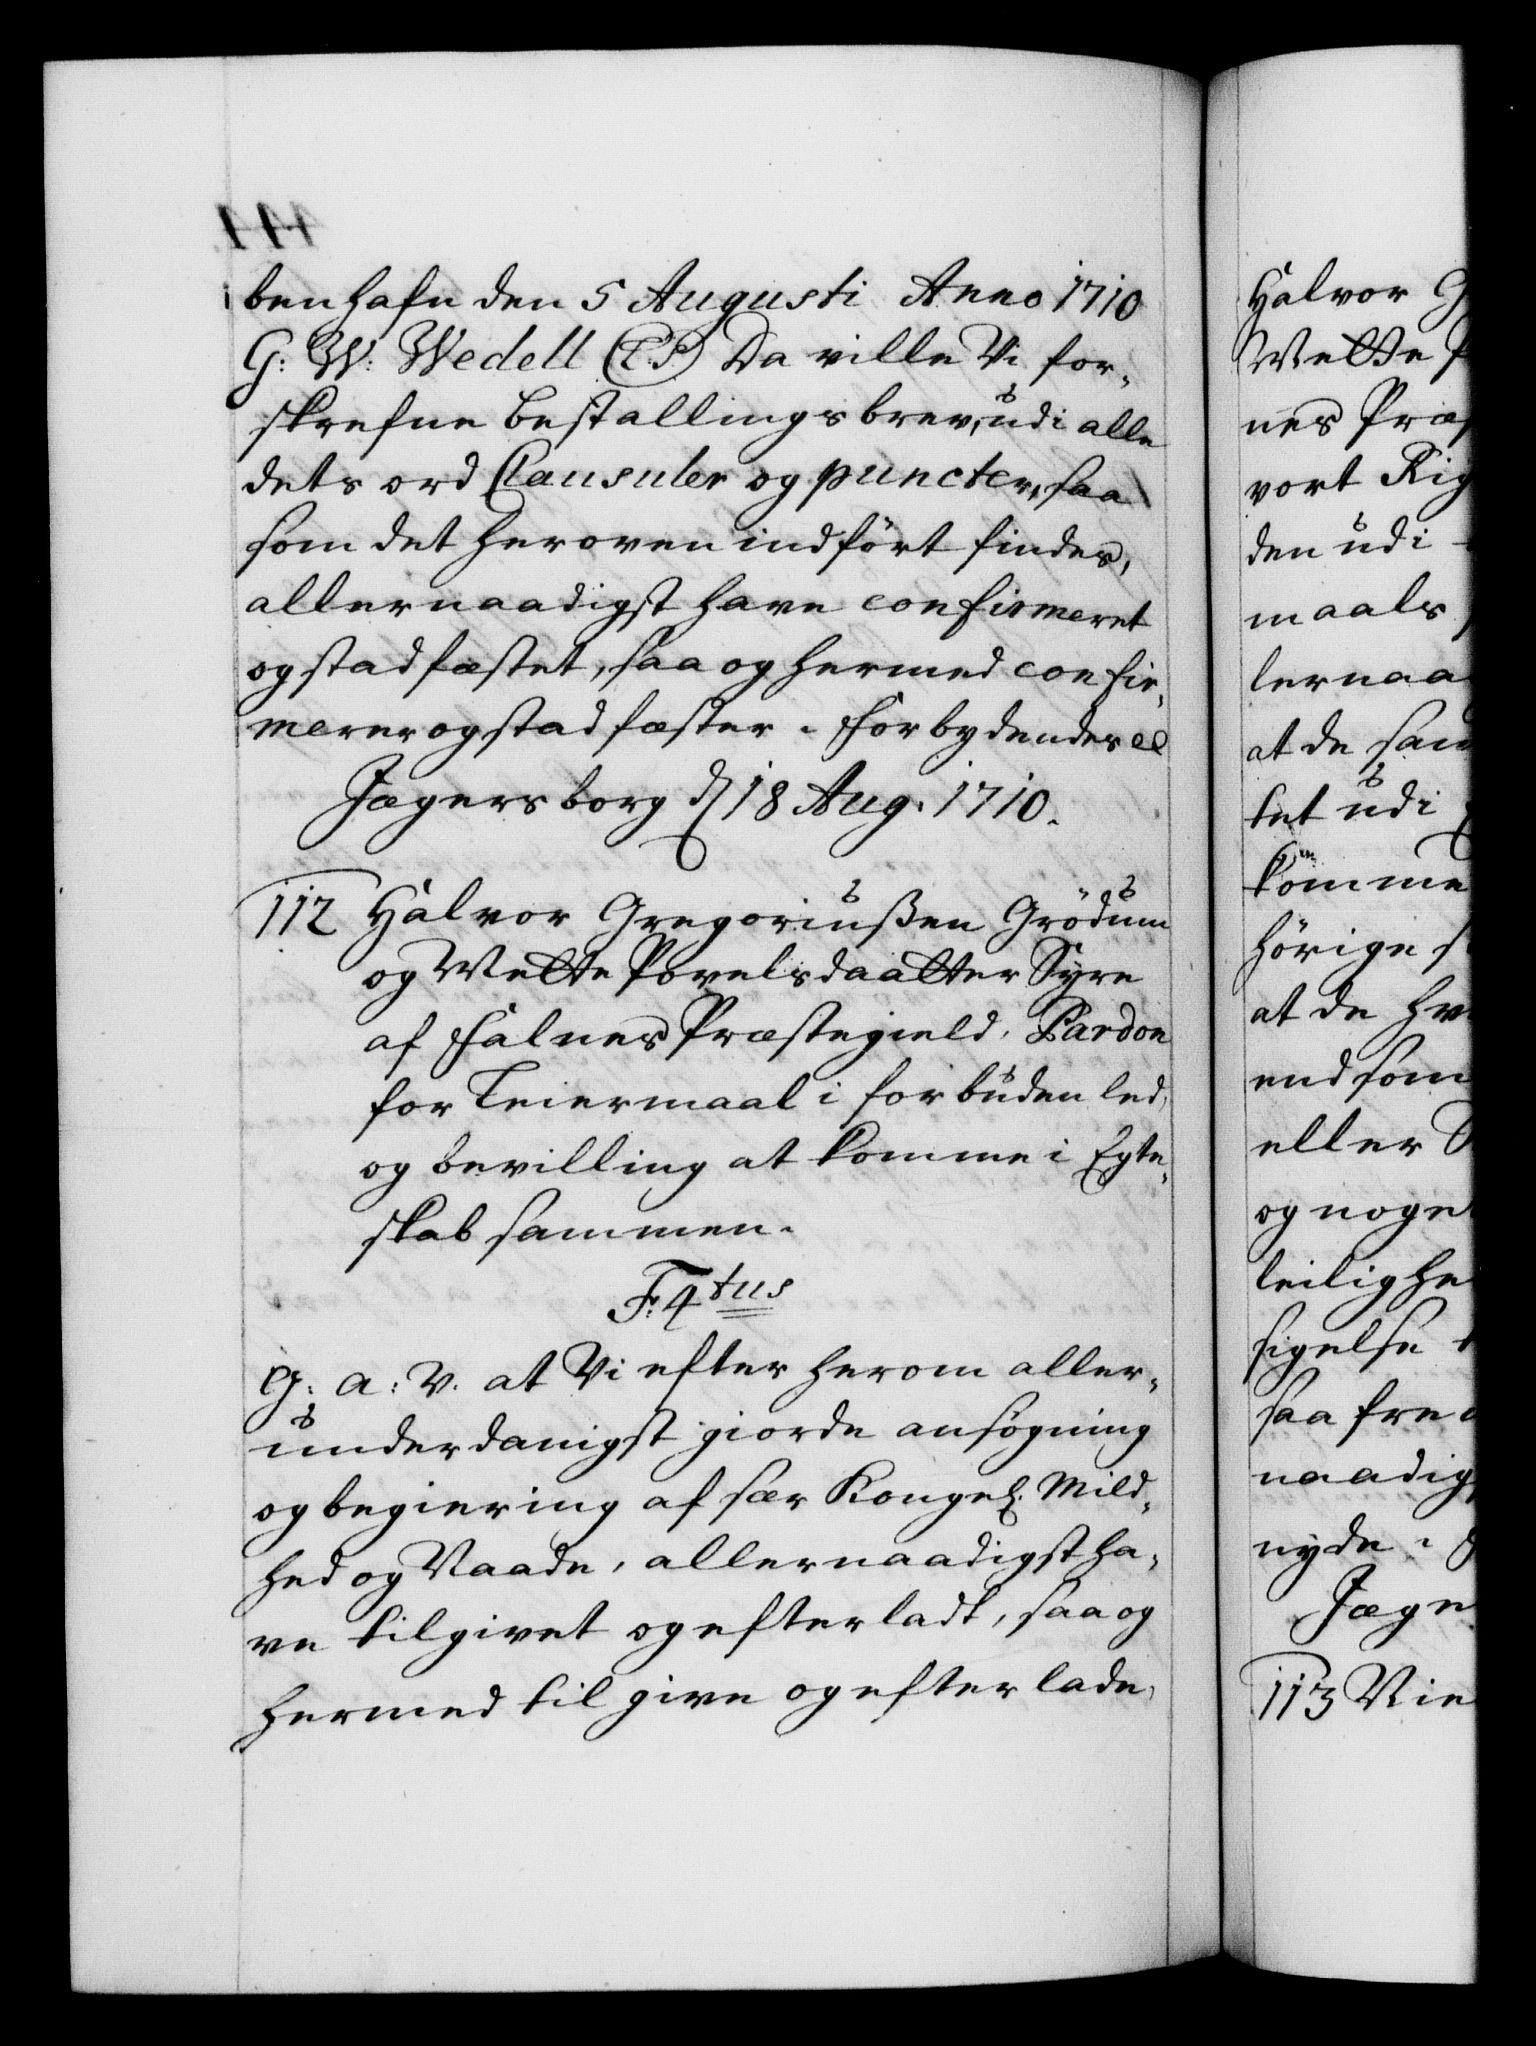 benhafn den 5 Augusti Anno 1710
G: W: Wedell (LS) Da ville Vi for„
skrefne bestallings brev, udi alle
dets ord Clausuler og puncter, saa
som det her oven indfört findes,
allernaadigst have confirmeret
og stadfæstet, saa og hermed confir„
merer og stadfæster. Forbydendes etc
Jægersborg d 18 Aug. 1710.
112 Halvor Gregoriußen Grödum
og Mette Povelsdaatter Syre
af Falnes Præstegield, Pardon
for Leiermaal i forbuden led,
og bevilling at komme i Egte„
skab sammen.
F. 4tus
G: a: V: at Vi efter herom aller„
underdanigst giorde ansøgning
og begiering af sær Kongel. Mild„
hed og Naade, allernaadigst ha„
ve tilgivet og efterladt, saa og
hermed tilgive og efterlade,
Halvor G
Mette P
nes Præ
vort Rig
den udi
maals
lernaa
at de sam
tet udi
komme
hörige
at de hv
end som
eller S
og noge
leilighe
sigelse
saa frem
naadig
nyde.
Jæge
113 Nie